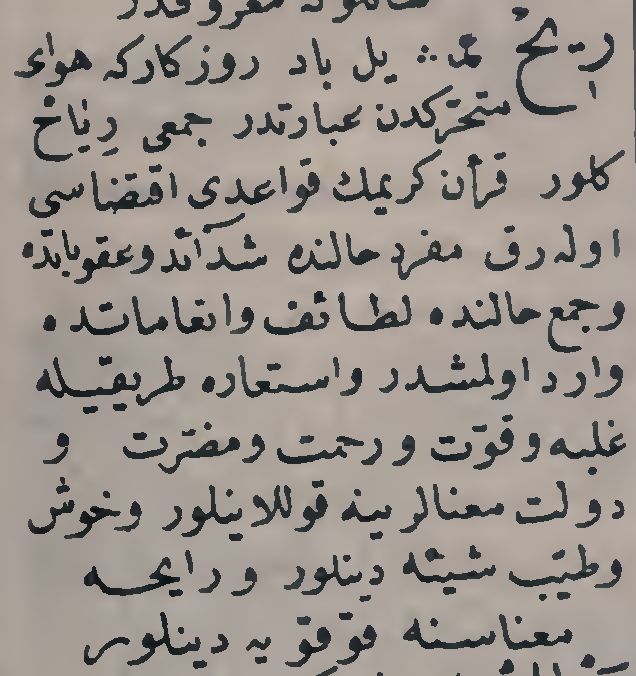 ريح مؤنث يل باد روزكار كه هواء
متحركدن عبارتدر جمعى رياح
كلور قرآن كريمك قواعدى اقتضاسى
اوله رق مفرد حالنده شدائد و عقوباتده
وجمع حالنده لطائف وانعاماتده
وارد اولمشدر واستعاره طريقيله
غلبه و قوّت و رحمت ومضرّت و
دولت معنالرينه قوللانيلور وخوش
وطيّب شيئه دينلور و رايحه
معناسنه قوقو يه دينلور